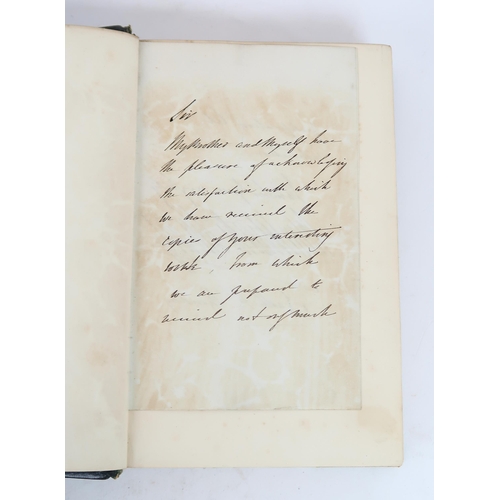 Sir
My Brother and Myself have
the pleasure of acknowledging
the satisfaction with which
we have received the
copies of your interesting
work, from which
we are prepared to
not only much